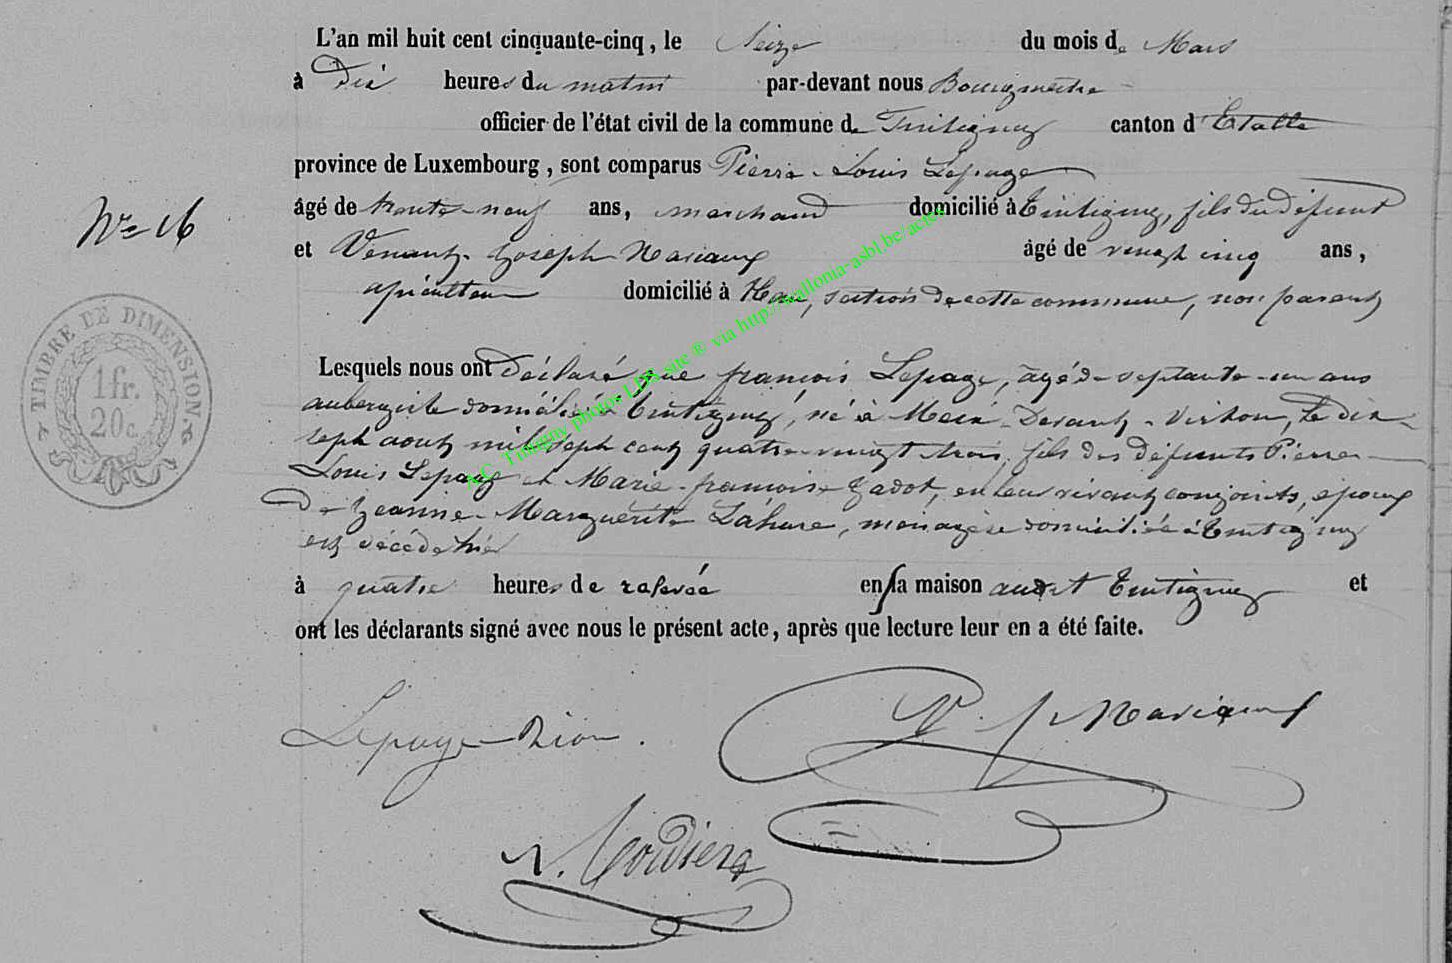 L'an mil huit cent cinquante-cinq, le Seize du mois de Mars
à Dix heures du matin par-devant nous Bourgmestre
officier de l'état civil de la commune de Tintigny canton d'Etalle
province de Luxembourg, sont comparus Pierre-Louis Lepage
âgé de trente-neuf ans, marchand domicilié à Tintigny, fils du défunt
Nº 16
et Venant-Joseph Mariaux âgé de vingt cinq ans,
apiculteur domicilié à Han, section de cette commune, non parents
TIMBRE DE DIMENSION
1 fr.
20 c.
Lesquels nous ont Déclaré que françois Lepage, âgé de septante-un ans
aubergiste domicilié à Tintigny, né à Meix-Devant-Virton, le dix
sept aout mil sept cent quatre-vingt trois, fils des défunts Pierre
Louis Lepage et Marie-françoise Gadot, en leur vivant conjoints, époux
De Jeanne-Marguerite Lahure, ménagère domiciliée à Tintigny
est décédé hier
à quatre heures de relevée en sa maison audit Tintigny et
ont les déclarants signé avec nous le présent acte, après que lecture leur en a été faite.
A.C. Tintigny photos LDS site ® via http://wallonia-asbl.be/actes
Lepage-Dion. V. J. Mariaux